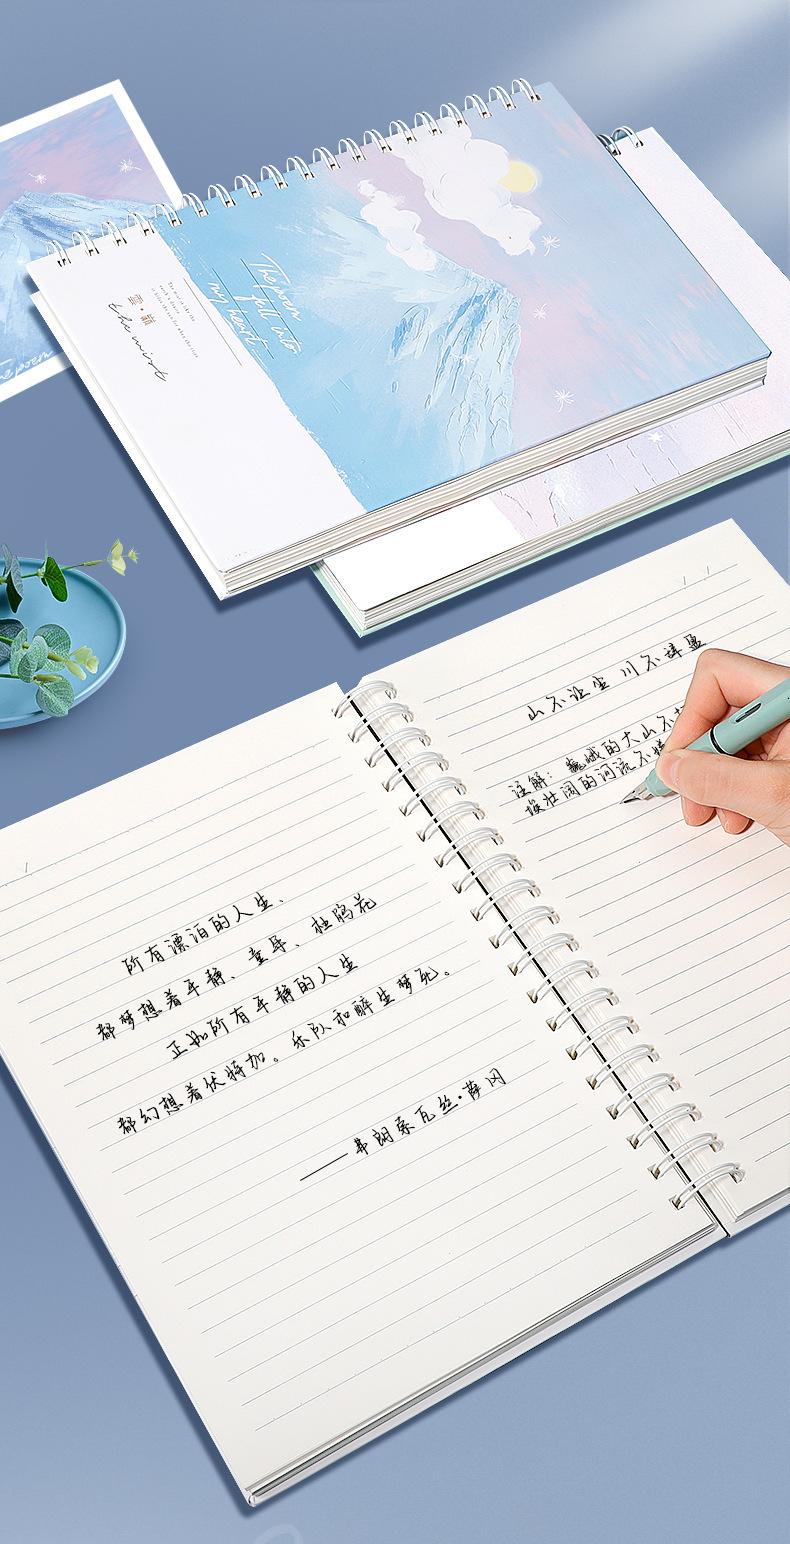 The poem
fell into
my heart
the mist
所有漂泊的人生、
都梦想着平静、童年、杜鹃花
正如所有平静的人生
都幻想着伏特加。乐队和醉生梦死。
——弗朗索瓦丝·萨冈
山不让尘 川不辞盈
注解：巍峨的大山不
埃壮阔的河流不